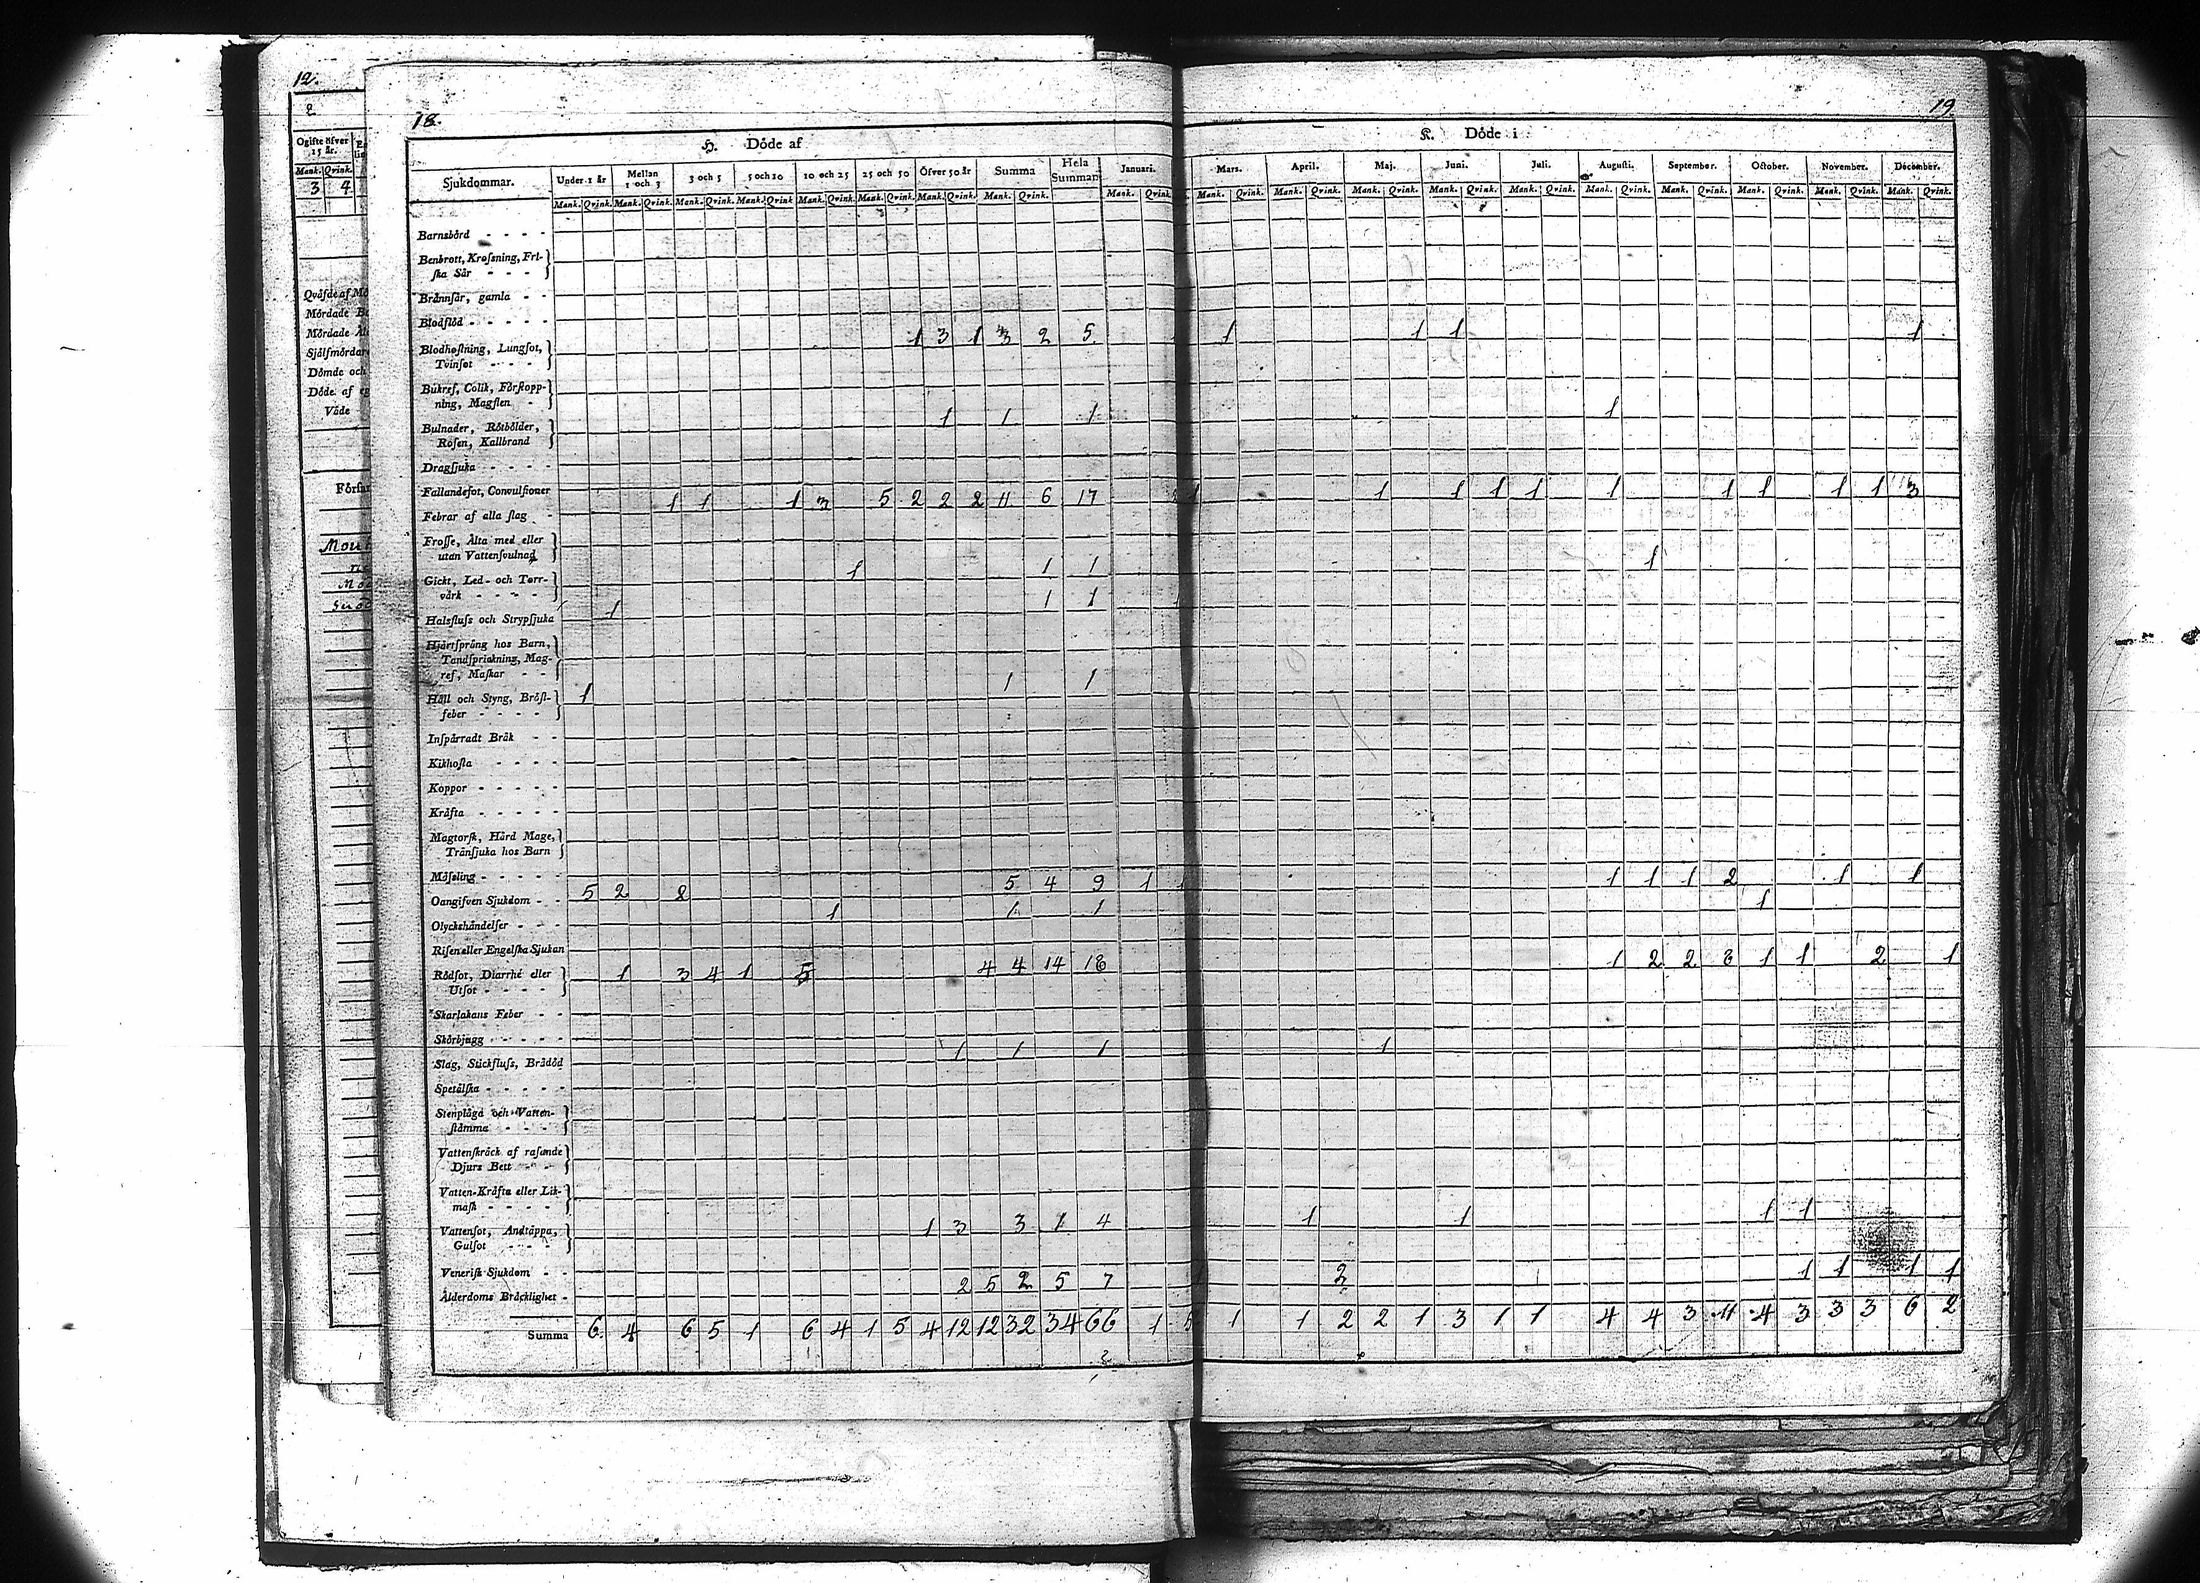 12.
2
Ogifte öfver
15 år.
Mank. Qvink.
3 4
Qväfde af
Mördade
Mördade
Själfmördare
Dömde och
Döde af
Våde
18.
H. Döde af
Sjukdommar. Under 1 år Mellan 1 och 3 3 och 5 5 och 10 10 och 25 25 och 50 Öfver 50 år Summa Hela Summan Januari.
Mank. Qvink. Mank. Qvink. Mank. Qvink. Mank. Qvink. Mank. Qvink. Mank. Qvink. Mank. Qvink. Mank. Qvink. Mank. Qvink.
Barnsbörd - - - -
Benbrott, Krossning, Fri-
ska Sår - - -
Brännsår, gamla - -
Blodflöd - - - - -
1 3 1 3 2 5
Blodhostning, Lungsot,
Tvinsot - - - -
Bukref, Colik, Förstopp-
ning, Magslen -
1 1 1
Bulnader, Rötbölder,
Rosen, Kallbrand
Dragsjuka - - - -
Fallandesot, Convulsioner
1 1 1 3 5 2 2 2 11 6 17
Febrar af alla slag -
Frosse, Älta med eller
utan Vattensvulnad
1 1 1
Gickt, Led- och Torr-
värk - - - -
1 1 1
Halsfluss och Strypsjuka
Hjertsprång hos Barn,
Tandsprickning, Mag-
ref, Maskar - -
1 1 1
Håll och Styng, Bröst-
feber - - - -
Inspärradt Bråk - -
Kikhosta - - - -
Koppor - - - - -
Kräfta - - - - -
Magtorsk, Hård Mage,
Tränsjuka hos Barn
Mässling - - - - -
5 2 2 5 4 9 1 1
Oangifven Sjukdom - -
1 1 1
Olyckshändelser - - -
Risen eller Engelska Sjukan
1 3 4 1 5 4 4 14 18
Rödsot, Diarrhé eller
Utsot - - - -
Skarlakans Feber - -
Skörbjugg - - - - -
1 1 1
Slag, Stickfluss, Brådöd
Spetälska - - - - -
Stenplåga och Vatten-
stämma - - -
Vattenskräck af rasande
Djurs Bett - - -
Vatten-Kräfta eller Lik-
mask - - - -
1 3 3 1 4
Vattensot, Andtäppa,
Gulsot - - - -
Venerisk Sjukdom - -
2 5 2 5 7
Ålderdoms Bräcklighet -
Summa 6 4 6 5 1 6 4 1 5 4 12 12 32 34 66 1 5
19.
K. Döde i
Mars. April. Maj. Juni. Juli. Augusti. September. October. November. December.
Mank. Qvink. Mank. Qvink. Mank. Qvink. Mank. Qvink. Mank. Qvink. Mank. Qvink. Mank. Qvink. Mank. Qvink. Mank. Qvink. Mank. Qvink.
1 1 1 1
1
1 1 1 1 1 1 1 1 1 1 3
1
1 1 1 2 1 1
1
1 2 2 8 1 1 2 1
1
1 1 1 1
2 1 1 1 1
1 1 2 2 1 3 1 1 4 4 3 11 4 3 3 3 6 2